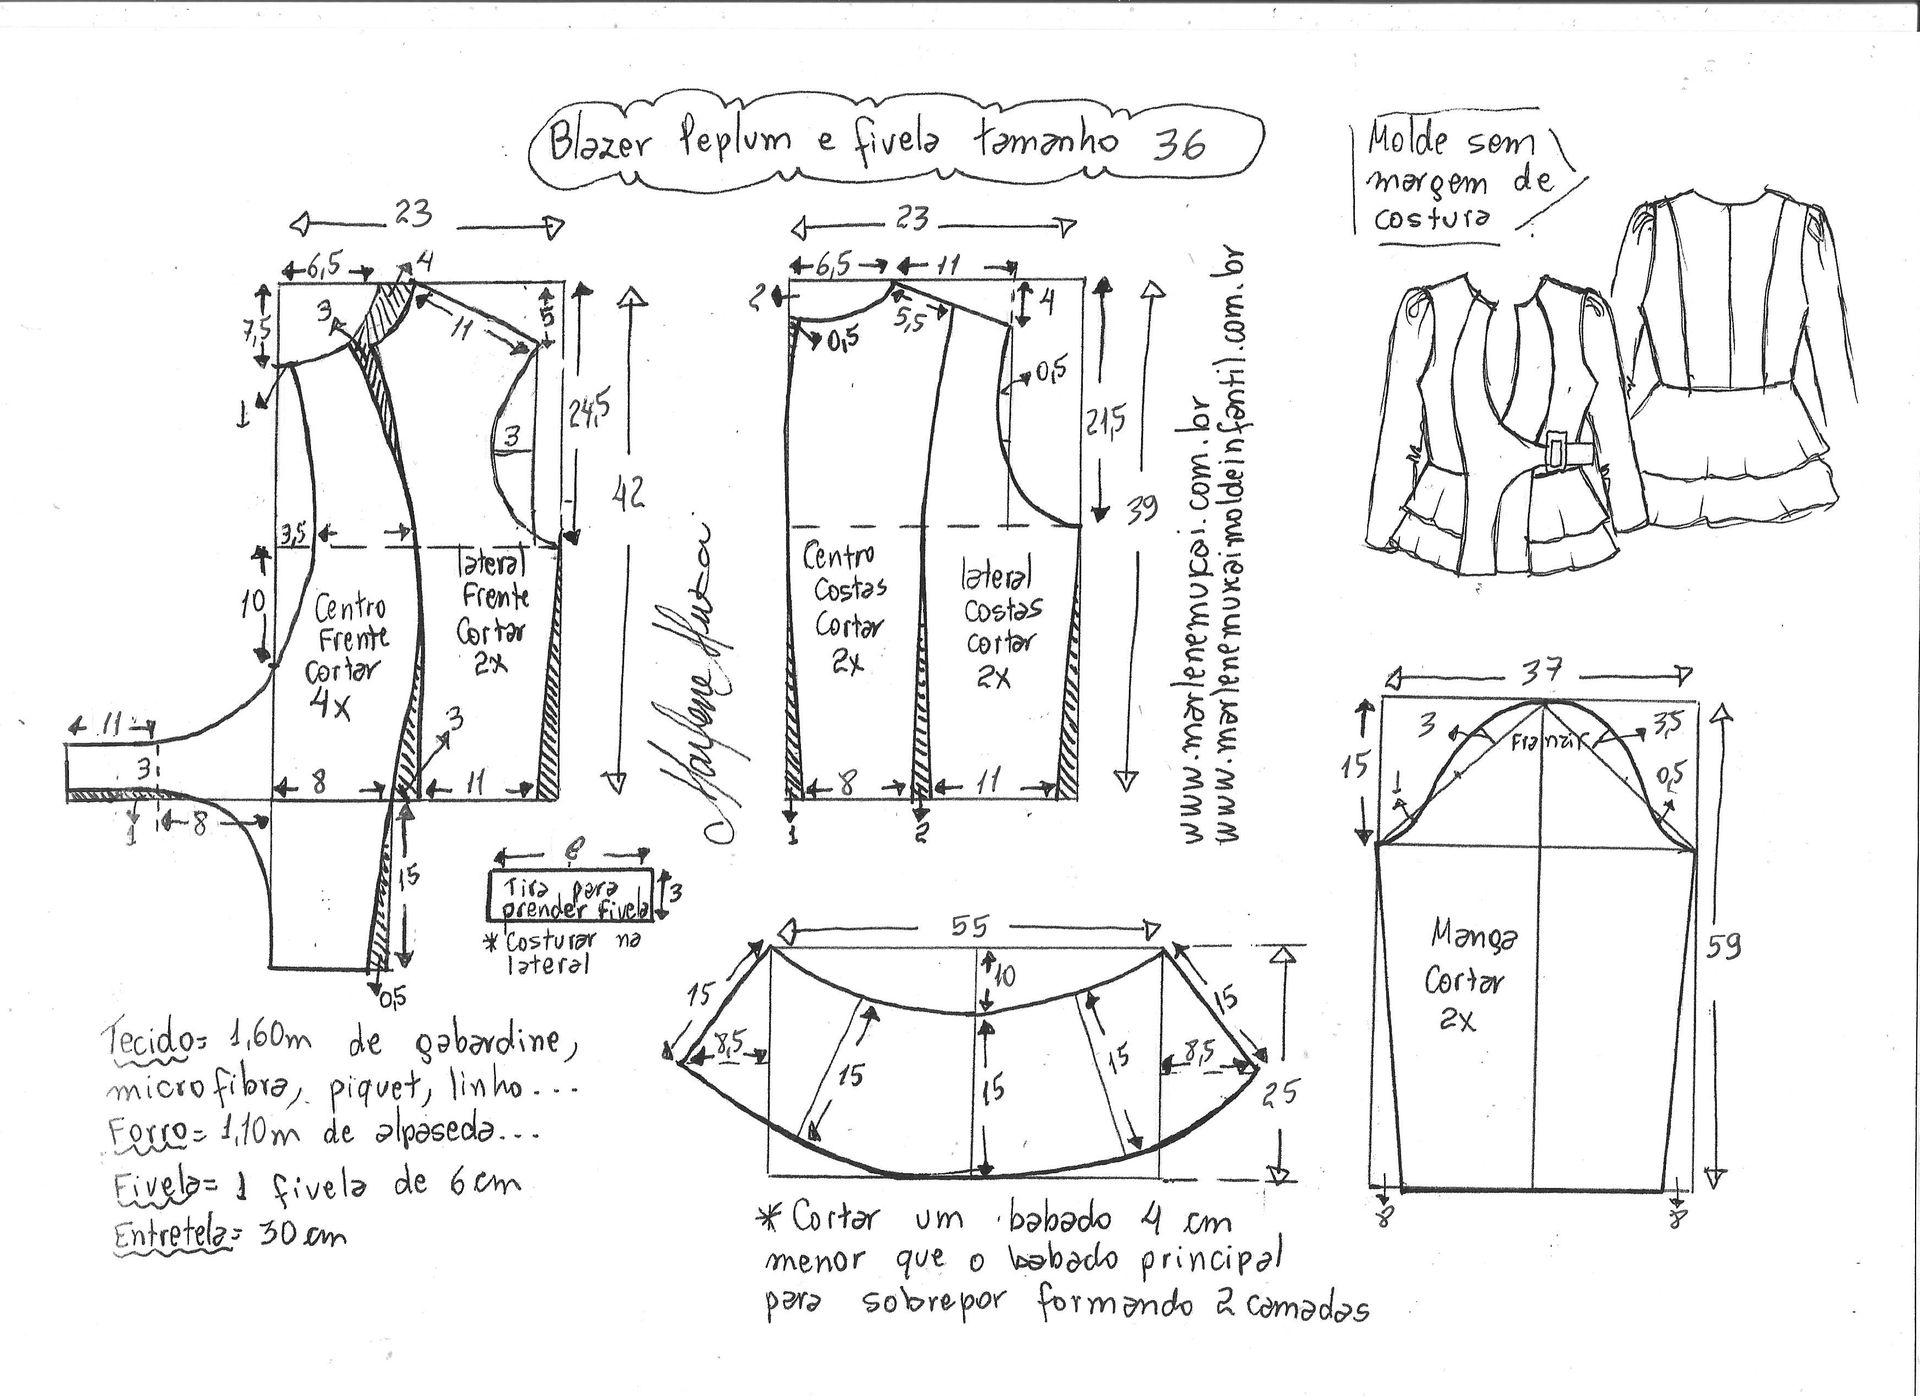 Blazer Peplum e fivela tamanho 36
Molde sem
margem de
costura
23
6,5
4
7,5
3
11
5
1
3
24,5
42
3,5
10
Centro
Frente
Cortar
4x
lateral
Frente
Cortar
2x
11
3
3
8
11
1
8
15
0,5
23
6,5
11
2
0,5
5,5
4
0,5
21,5
39
Centro
Costas
Cortar
2x
lateral
Costas
Cortar
2x
8
11
1
2
www.marlenemukai.com.br
www.marlenemukaimoldeinfantil.com.br
Marlene Mukai
Tira para
prender fivela
3
* Costurar na
lateral
55
10
15
15
8,5
8,5
15
15
15
25
37
3
Franzir
3,5
15
1
0,5
Manga
Cortar
2x
59
Tecido= 1,60m de gabardine,
microfibra, piquet, linho...
Forro= 1,10m de alpaseda...
Fivela= 1 fivela de 6cm
Entretela= 30cm
* Cortar um babado 4 cm
menor que o babado principal
para sobrepor formando 2 camadas